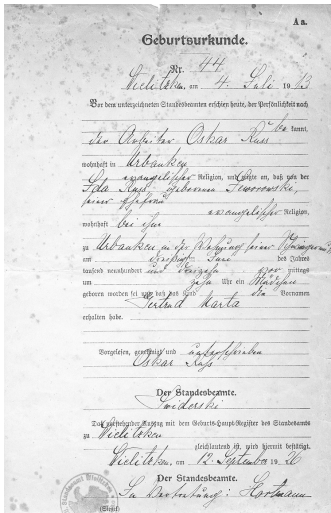 A a.
Geburtsurkunde.
Nr. 44
Wielitzken, am 4. Juli 1913
Vor dem unterzeichneten Standesbeamten erschien heute, der Persönlichkeit nach
be kannt,
der Arbeiter Oskar Russ
wohnhaft in Urbanken
evangelischer Religion, und zeigte an, daß von der
Ida Russ geborenen
seiner Ehefrau
evangelischer Religion,
wohnhaft bei ihm
zu Urbanken in der Wohnung seiner
am dreißigsten Juni des Jahres
tausend neunhundert und dreizehn vor mittags
um zehn Uhr ein Mädchen
geboren worden sei und daß das Kind die Vornamen
Gertrud Marta
erhalten habe.
Vorgelesen, genehmigt und unterschrieben
Oskar Russ
Der Standesbeamte.
Swiderski
Daß vorstehender Auszug mit dem Geburts-Haupt-Register des Standesamts
zu Wielitzken
gleichlautend ist, wird hiermit bestätigt.
Wielitzken, am 12. September 1926
Der Standesbeamte.
In Vertretung: Hartmann
(Siegel)